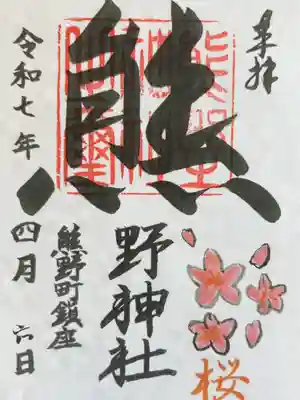 奉拝
熊
野神社
熊野町鎮座
令和七年
四月六日
桜